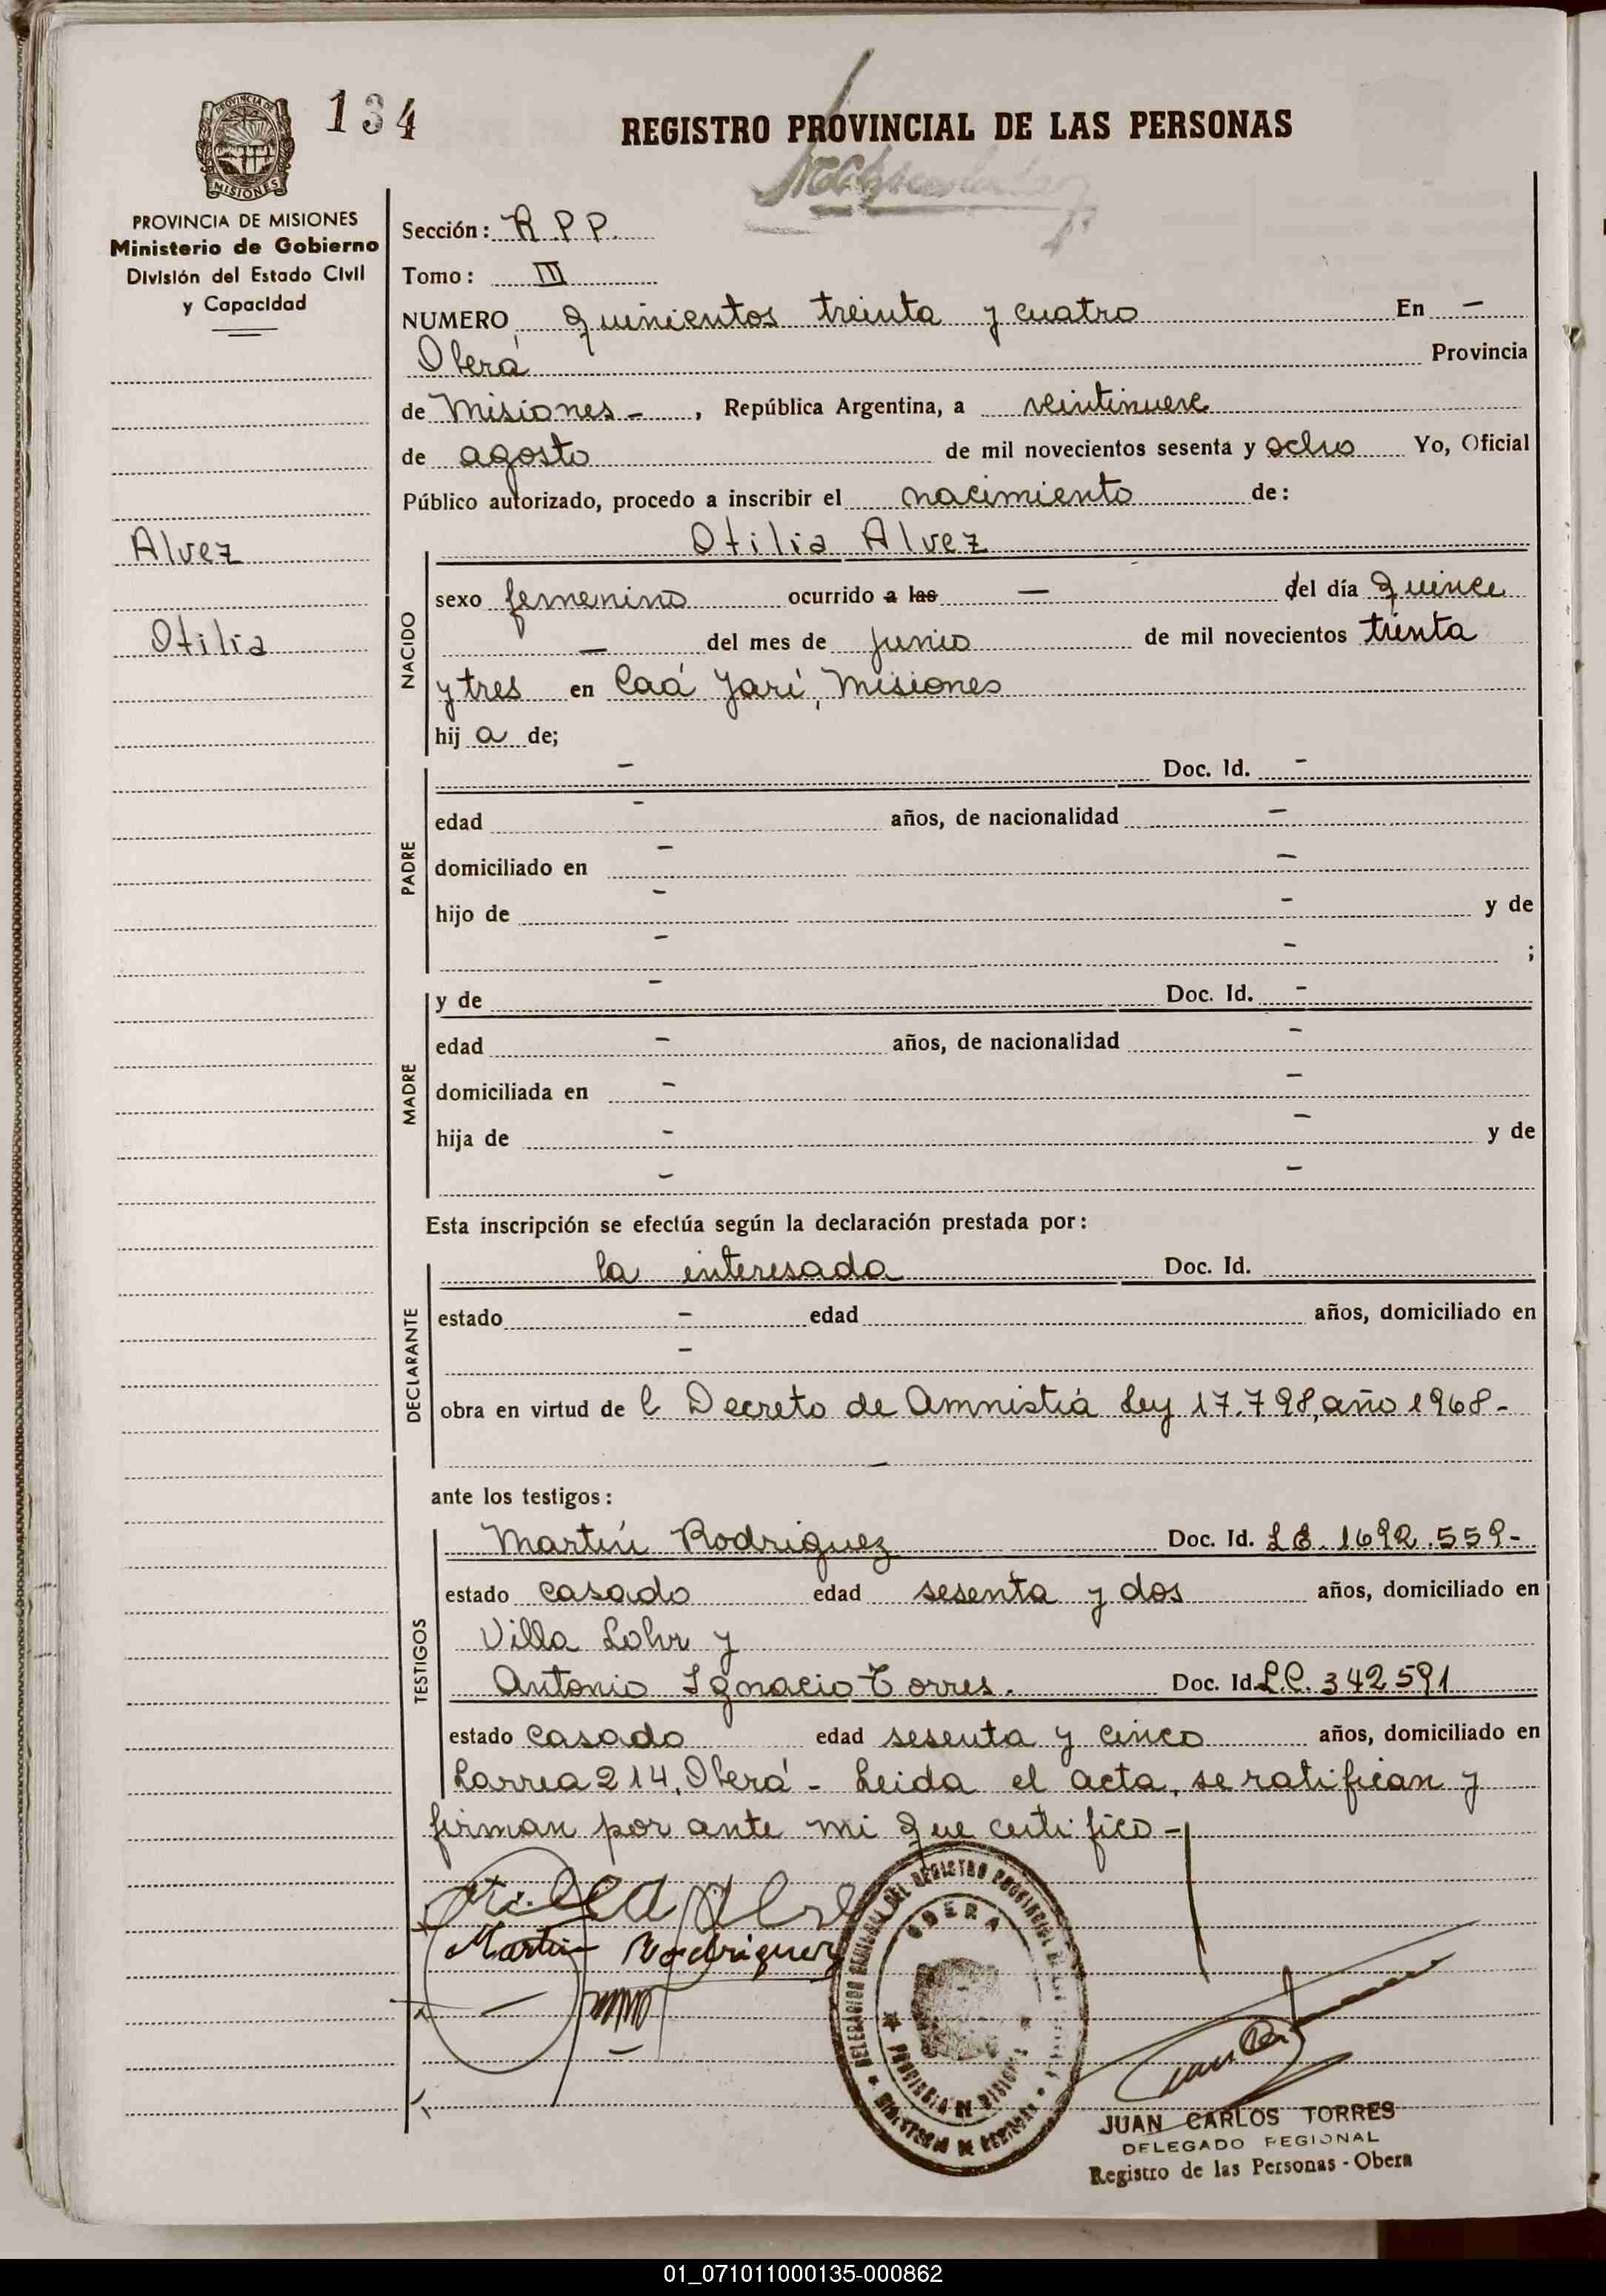 134
REGISTRO PROVINCIAL DE LAS PERSONAS
PROVINCIA DE
MISIONES
PROVINCIA DE MISIONES
Ministerio de Gobierno
División del Estado Civil
y Capacidad
Alvez
Otilia
Sección: R.P.P.
Tomo: III
NUMERO quinientos treinta y cuatro En -
Oberá Provincia
de Misiones - , República Argentina, a veintinueve
de agosto de mil novecientos sesenta y ocho Yo, Oficial
Público autorizado, procedo a inscribir el nacimiento de:
Otilia Alvez
NACIDO
sexo femenino ocurrido a las — del día quince
— del mes de junio de mil novecientos treinta
y tres en Caá Yarí, Misiones
hij a de;
- Doc. Id. -
PADRE
edad - años, de nacionalidad -
domiciliado en - -
hijo de - - y de
- - ;
y de - Doc. Id. -
MADRE
edad - años, de nacionalidad -
domiciliada en - -
hija de - - y de
- -
Esta inscripción se efectúa según la declaración prestada por:
la interesada Doc. Id.
DECLARANTE
estado - edad años, domiciliado en
-
obra en virtud de l Decreto de Amnistía Ley 17.798, año 1968-
—
ante los testigos:
TESTIGOS
Martín Rodriguez Doc. Id. L.E. 1692.559-
estado casado edad sesenta y dos años, domiciliado en
Villa Lohr y
Antonio Ignacio Torres. Doc. Id. L.C. 342591
estado casado edad sesenta y cinco años, domiciliado en
Larrea 214, Oberá - Leida el acta, se ratifican y
firman por ante mi que certifico -
Otilia Alve
Martin Rodriguez
DELEGACION REGIONAL DEL REGISTRO PROVINCIAL DE LAS
OBERA
PROVINCIA DE MISIONES
MINISTERIO DE GOBIERNO
JUAN CARLOS TORRES
DELEGADO REGIONAL
Registro de las Personas - Obera
01_071011000135-000862